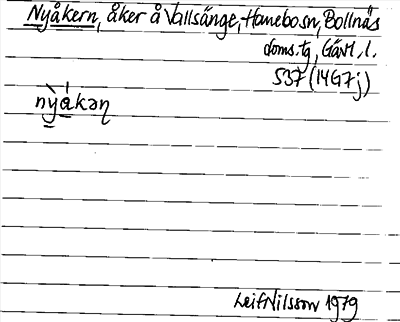 Nyåkern, åker å Vallsänge, Hanebo sn, Bollnäs
doms.tg, Gävl. l.
S37 (14G7j)
nỳákəɳ
Leif Nilsson 1979